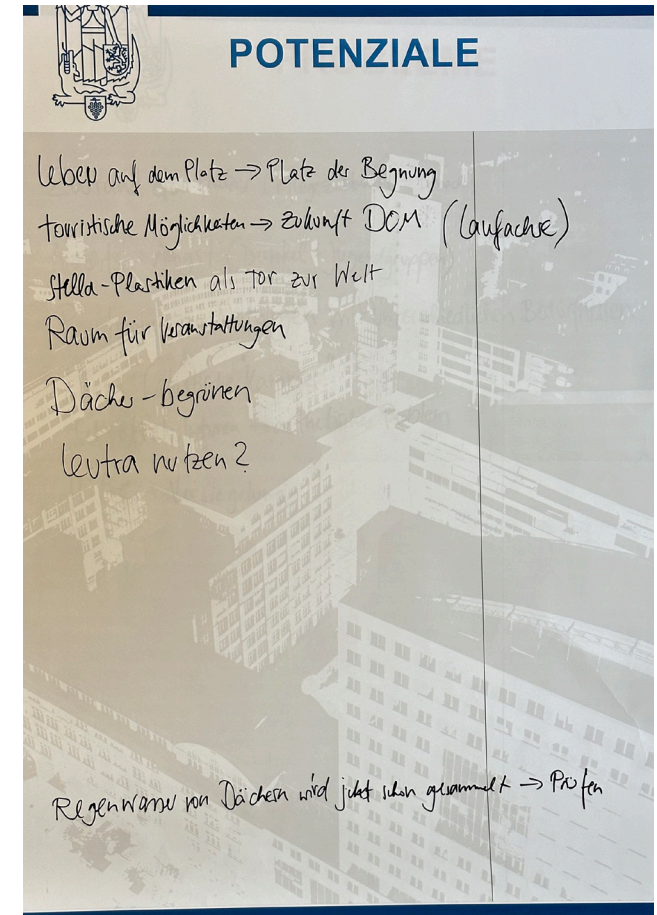 POTENZIALE
Leben auf dem Platz → Platz der Begnung
touristische Möglichkeiten → Zukunft DOM (Laufachse)
Stella-Plastiken als Tor zur Welt
Raum für Veranstaltungen
Dächer-begrünen
Leutra nutzen?
Regenwasser von Dächern wird jetzt schon gesammelt → Prüfen